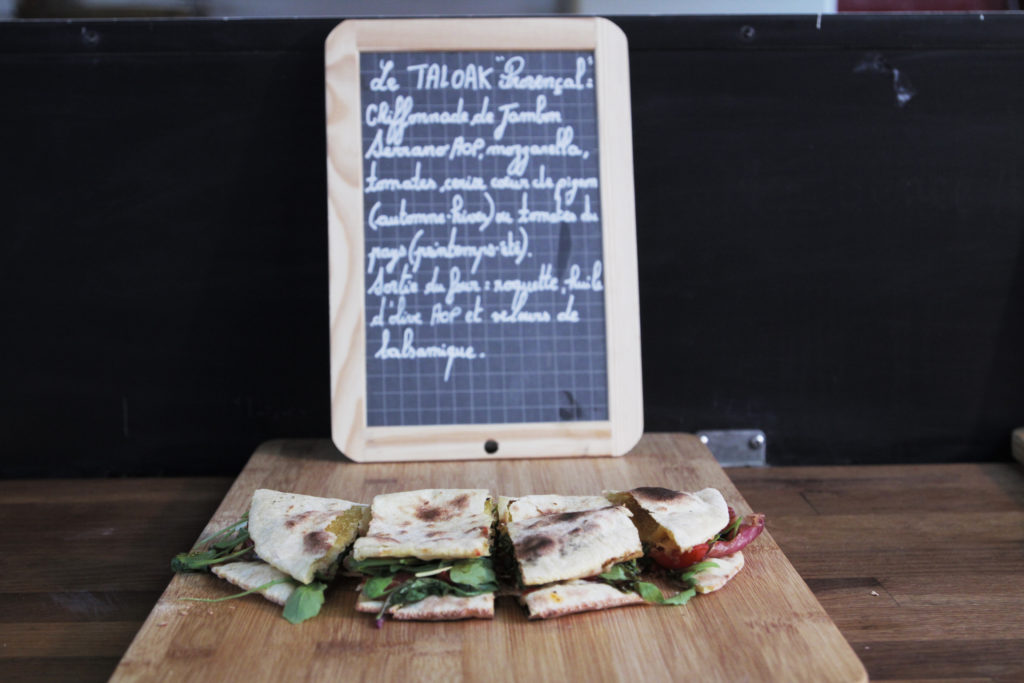 Le TALOAK "Provençal":
Chiffonnade de Jambon
Serrano AOP, mozzarella,
tomates, cerise cœur de pigeon
(automne-hiver) ou tomates du
pays (printemps-été).
Sortie du four : roquette, huile
d'olive AOP et velours de
balsamique.